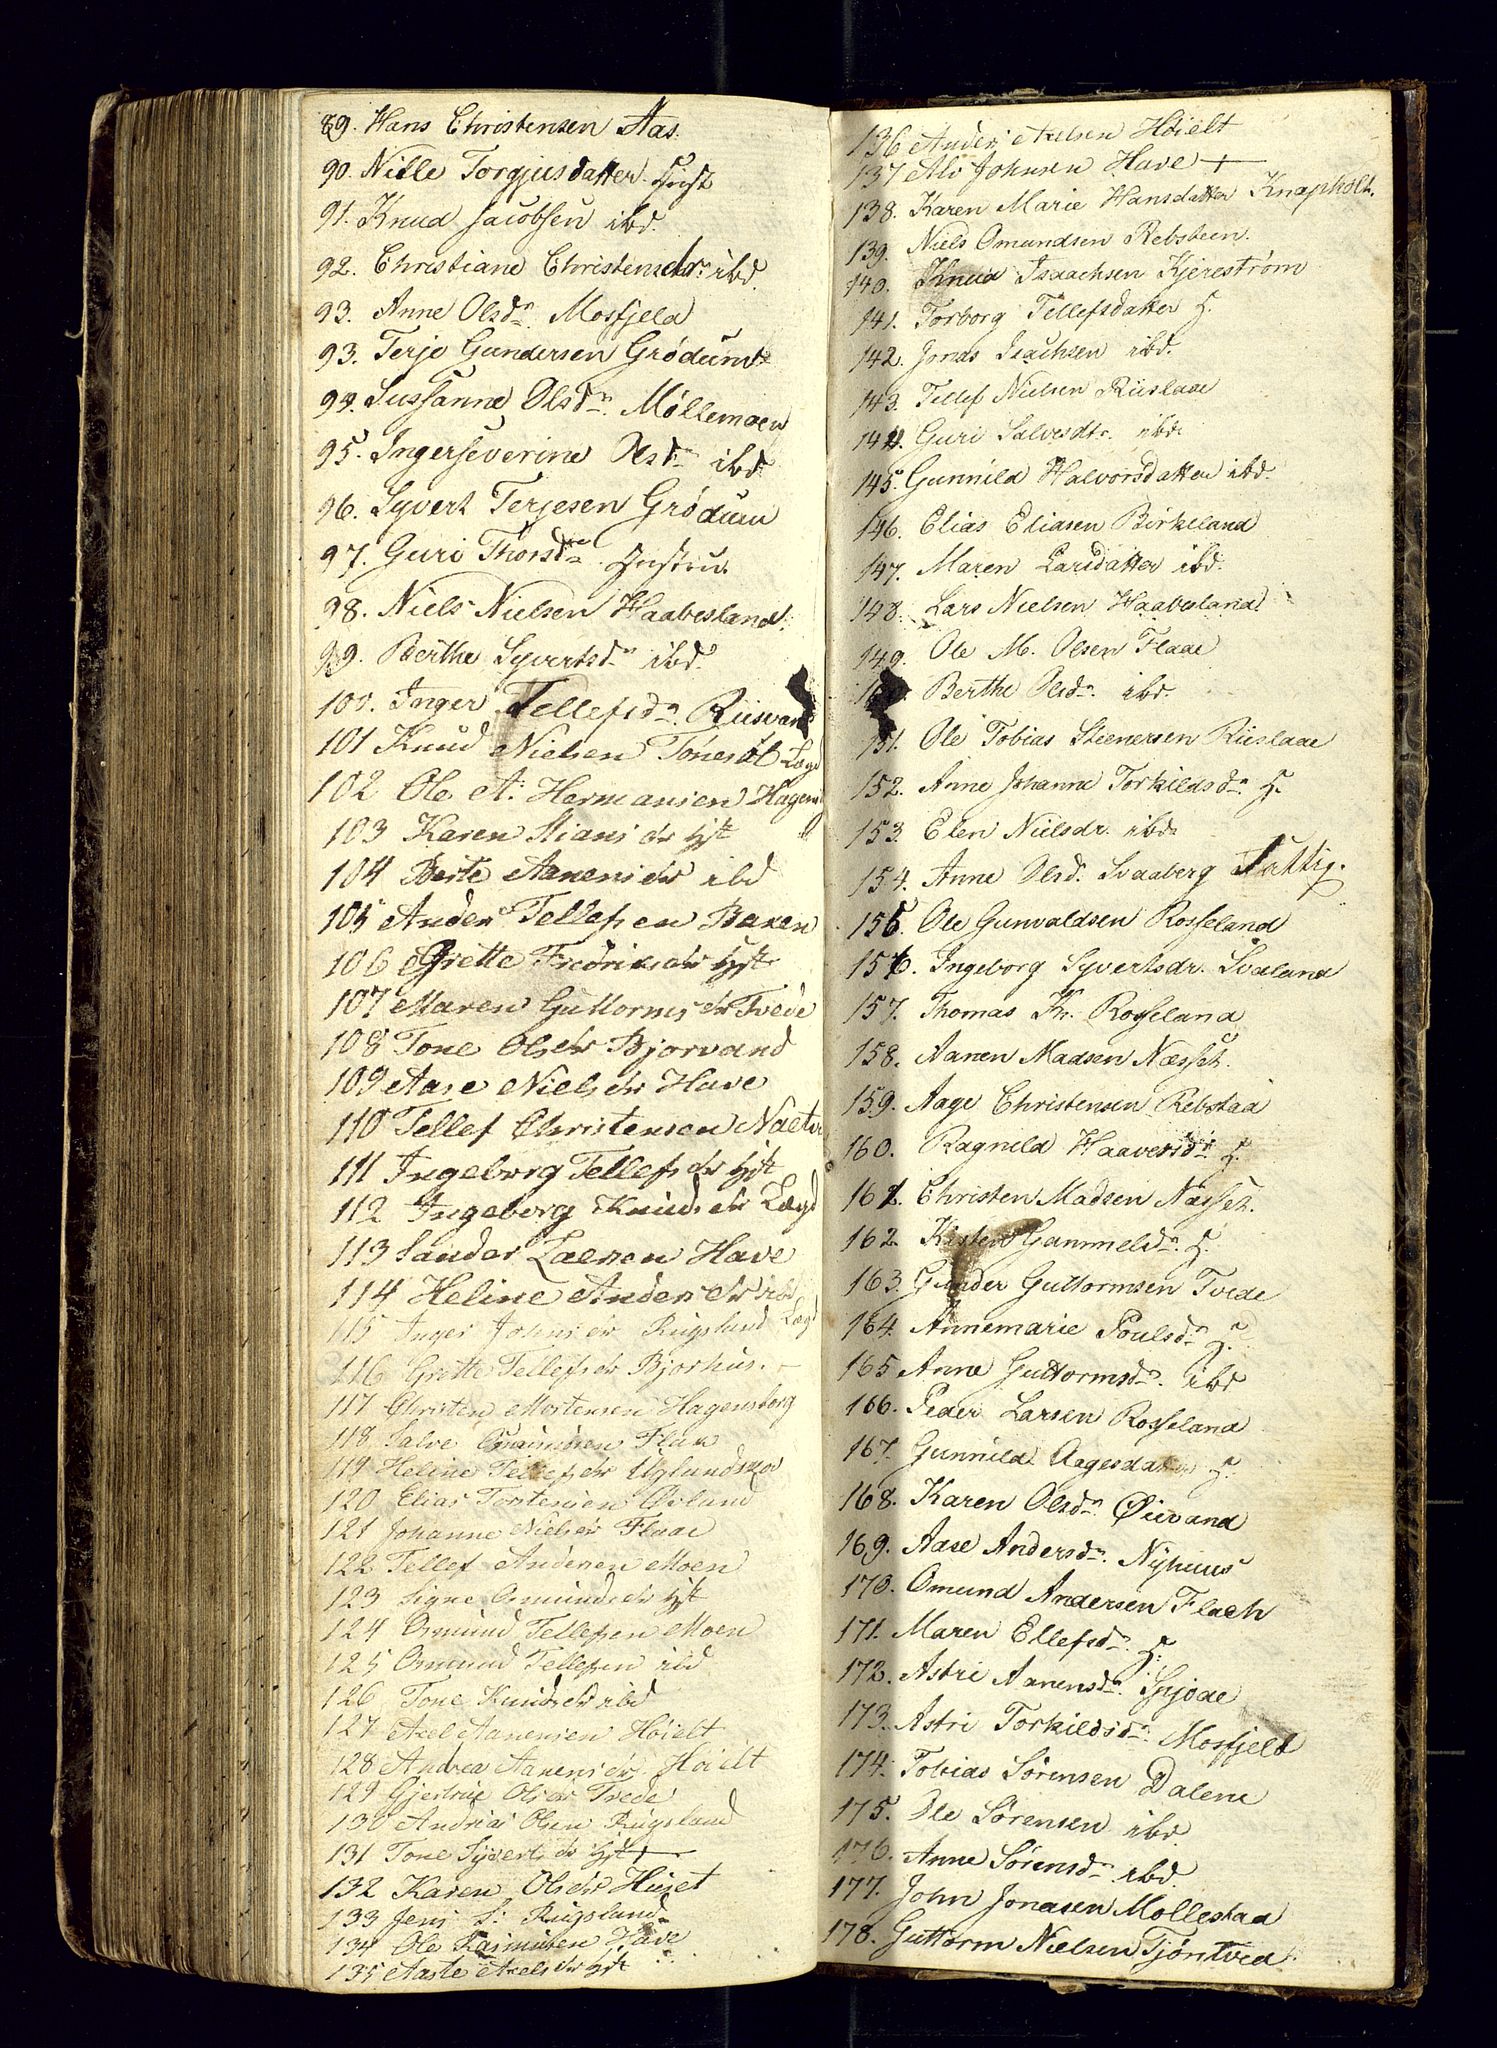 89. Hans Christensen Aas.
90. Nille Torgjusdatter Hust
91. Knud Jacobsen ibd.
92. Christiane Christensdr. ibd.
93. Anne Olsdr. Mosfjeld
93. Terje Gundersen Grødum
94. Sussanne Olsdr. Møllemoen
95. Ingerseverine Olsdr ibd
96. Syvert Terjesen Grødum
97. Guri Thorsdr
98. Niels Nielsen Haabesland.
99. Berthe Syvertsdr ibd.
100. Inger Tellefsdr. Riisvand
101 Knud Nielsen Tonesøl Lægd
102 Ole A. Hermansen
103 Karen Stiansdr Hst
104 Berte Aanensdr ibd
105 Anders Tellefsen Baaen
106 Grette Fredriksdr Hst
107 Maren Guttormsdr Tvede
108 Tone Olsdr Bjorvand
109 Aase Nielsdr Have
110 Tellef Christensen
111 Ingeborg Tellefsdr Hst
112 Ingeborg Knudsdr Lægd
113 Sander Larsen Have
114 Heline Andersdr ibd
115 Inger Johnsdr Rugsland Lægd
116 Grette Tellefsdr Bjorhus. –
117 Christen Mortensen Hagensborg
118 Salve Osmundsen Flaa
119 Heline Tellefsdr Uglandsaa
120 Elias Tortensen Øvland
121 Johanne Nielsdr Flaae
122 Tellef Andersen Moen
123 Signe Osmundsdr Hst
124 Osmund Tellefsen Moen
125 Osmund Tellefsen ibd
126 Tone Knudsdr ibd
127 Axel Aanensen Høielt
128 Andrea Aanensdr Høielt
129 Gjertrue Olsdr Tvede
130 Andreas Olsen Rugsland
131 Tone Syvertsdr Hst +
132 Karen Olsdr Huset
133 Jens S: Rugsland
134 Ole Rasmussen Have
135 Aaste Axelsdr Hst
136 Anders Axelsen Høielt
137 Alv Johnsen Have +
138. Karen Marie Hansdatter Knapholt.
139. Niels Omundsen Rebsteen.
140. Knud Isaachsen Kjerestrøm
141. Torborg Tellefsdatter H.
142. Jonas Isachsen ibd.
143. Tellef Nielsen Riislaae
144. Guri Salvesdtr. ibd.
145. Gunnild Halvorsdatter ibd.
146. Elias Eliasen Birkeland
147. Maren Larsdatter ibd.
148. Lars Nielsen Haabesland
149. Ole M. Olsen Flaae
150. Berthe Olsdr. ibd.
151. Ole Tobias Steenersen Riislaae
152. Anne Johanne Torkildsdr H.
153. Elen Nielsdr. ibd.
154. Anne Olsd. Svaaberg Fattig.
155. Ole Gunvaldsen Rosseland
156. Ingeborg Syvertsdr. Svaland
157. Thomas Kn. Rosseland
158. Aanen Madsen Næsset.
159. Aage Christensen Rebstaa
160. Ragnild Haaversdr H.
161. Christen Madsen Næsset.
162. Kisten Gammelsdr. H.
163. Gunder Guttormsen Tvede
164. Annemarie Poulsdr H.
165 Anne Guttormsdr. ibd
166. Peder Larsen Rosseland
167. Gunnild Aagesdatter H.
168. Karen Olsdr Øievand
169. Aase Andersdr. Nyhuus
170. Omund Andersen Flaeh
171. Maren Ellefsdr. H.
172. Astri Aanensdr.
173. Astri Torkildsdr. Mosfjeld
174. Tobias Sørensen Dalene
175. Ole Sørensen ibd
176. Anne Sørensdr ibd.
177. John Jonasen Mollestaa
178. Guttorm Nielsen Tjøntved.